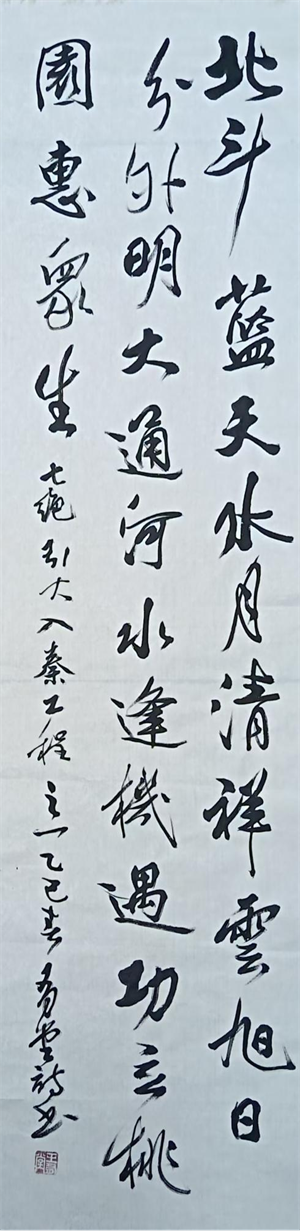 北斗蓝天水月清祥雲旭日
分外明大通河水逢機遇功立桃
園惠眾生七绝引大入秦工程之一乙巳春